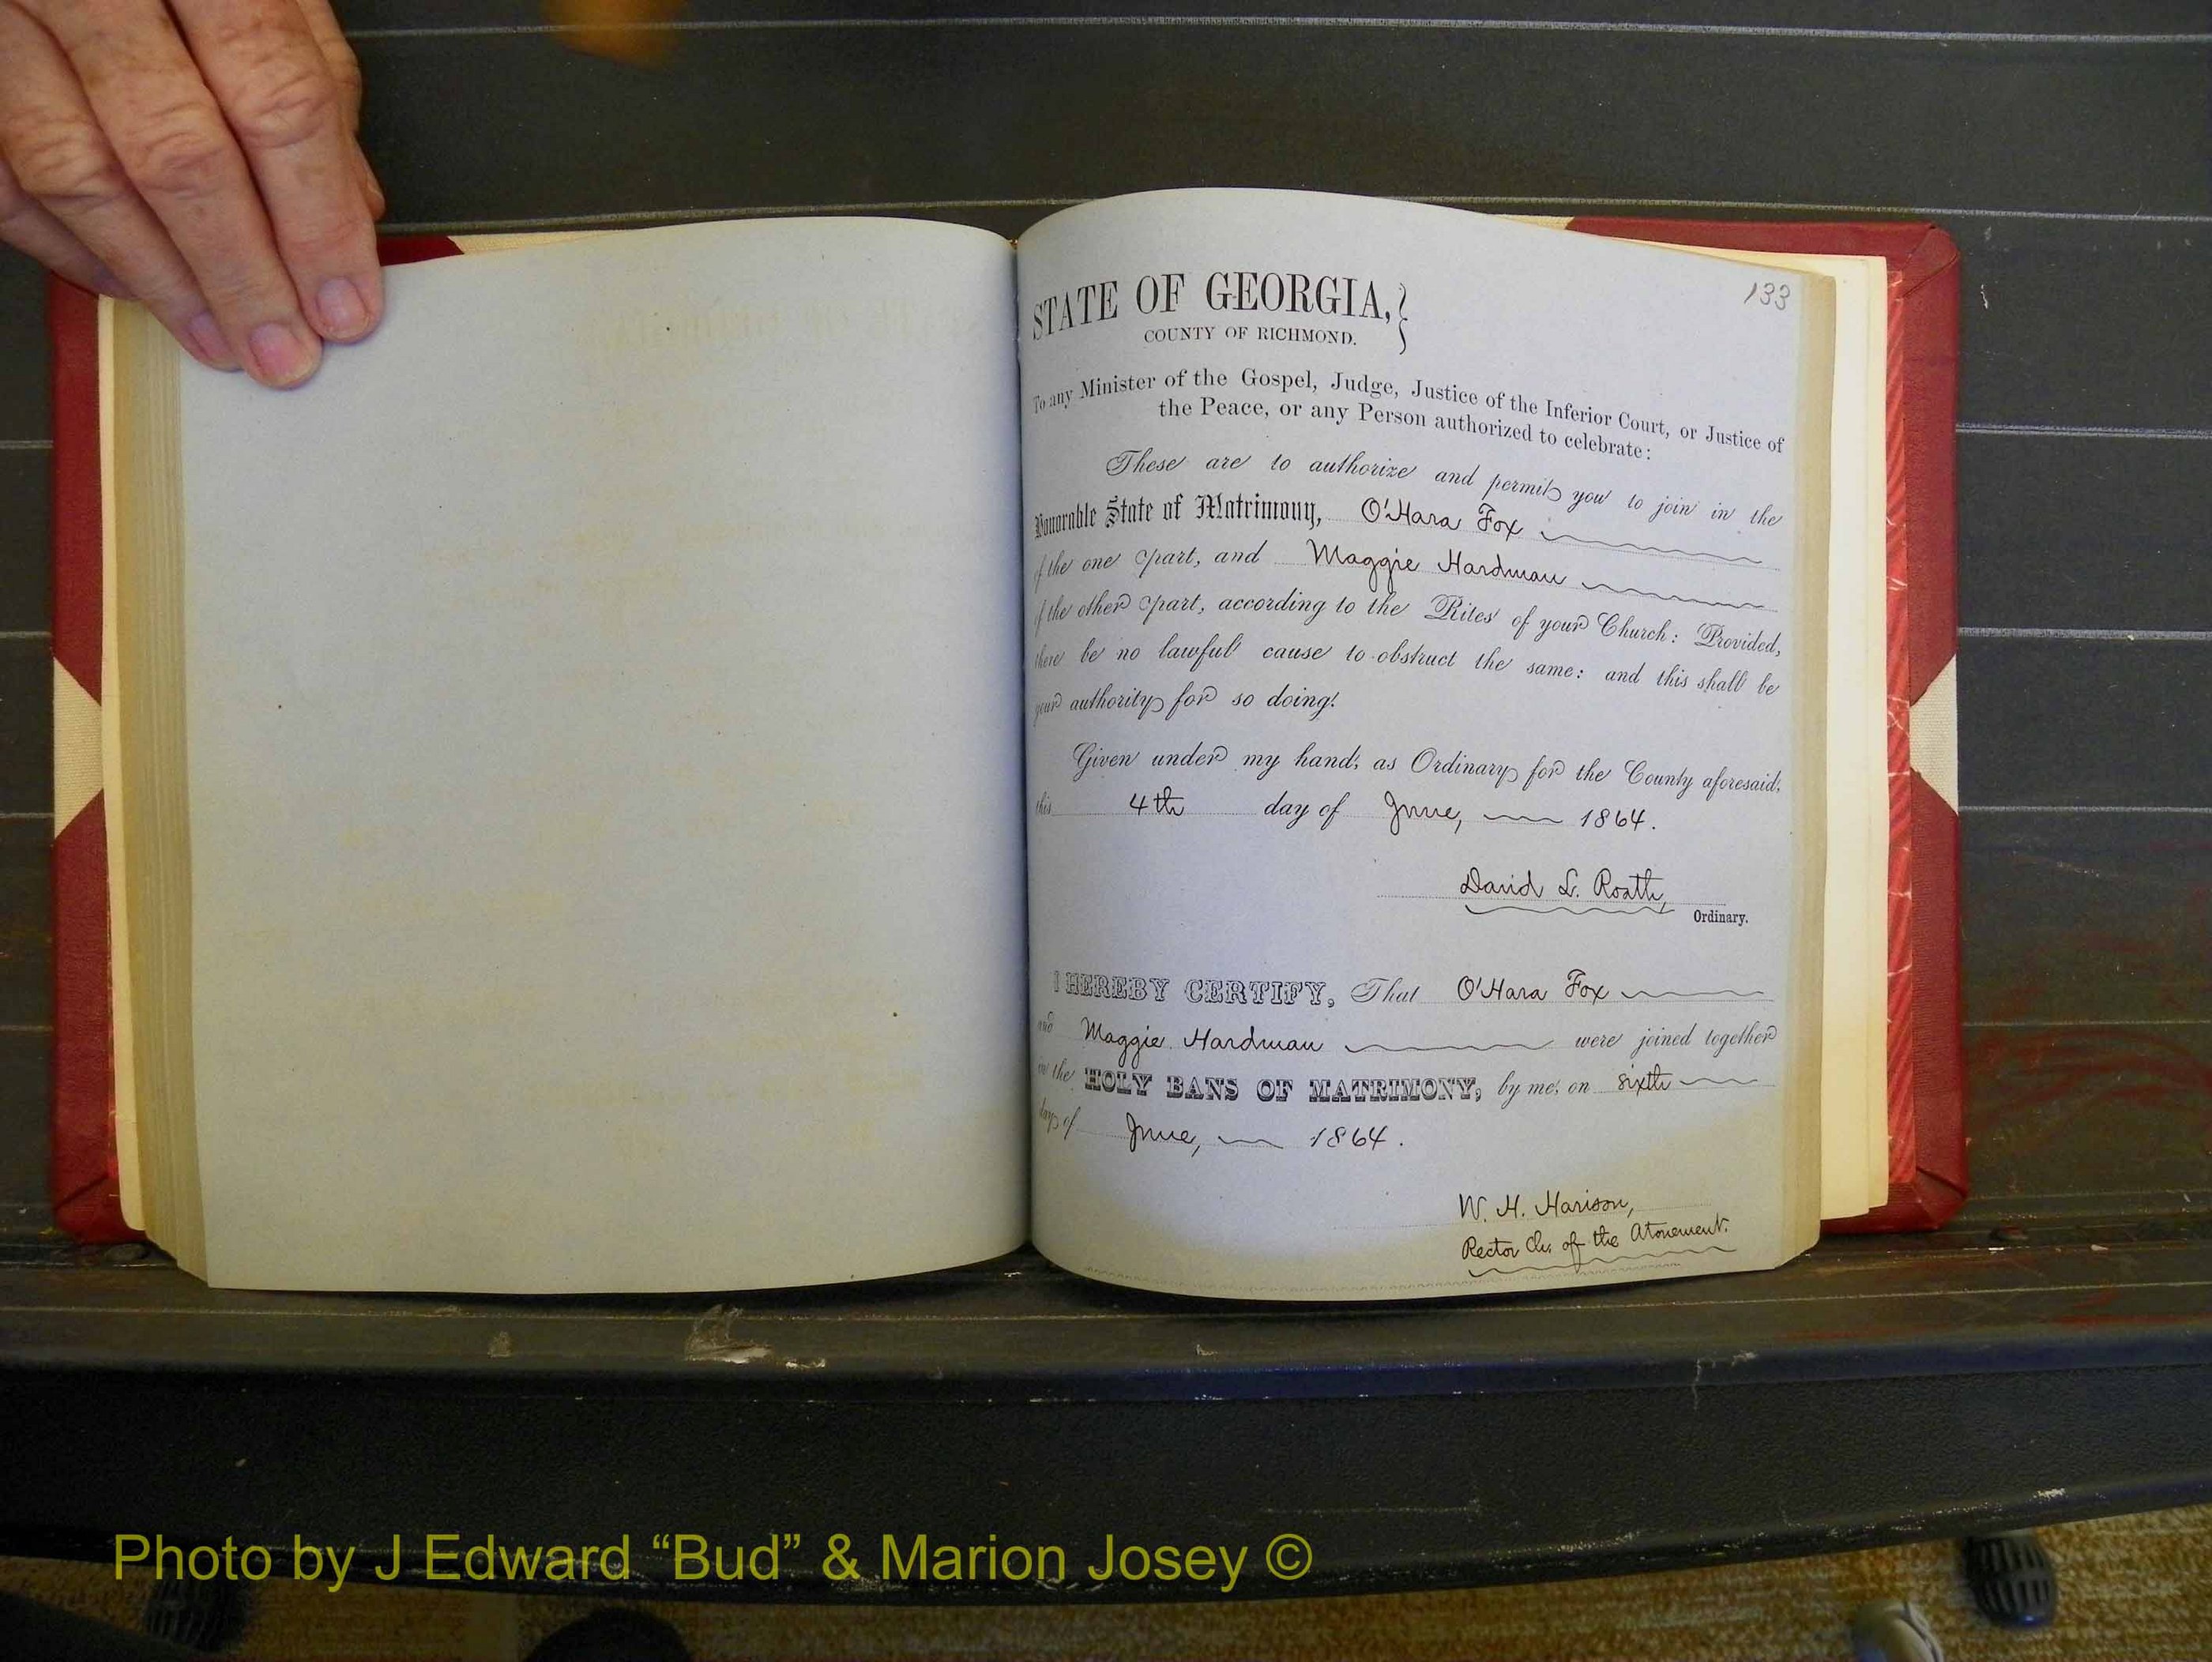 133
STATE OF GEORGIA,
COUNTY OF RICHMOND.
To any Minister of the Gospel, Judge, Justice of the Inferior Court, or Justice of
the Peace, or any Person authorized to celebrate:
These are to authorize and permit you to join in the
Honorable State of Matrimony, O'Hara Fox
of the one part, and Maggie Hardman
of the other part, according to the Rites of your Church: Provided,
there be no lawful cause to obstruct the same: and this shall be
your authority for so doing.
Given under my hand, as Ordinary for the County aforesaid,
this 4th day of June, 1864.
David L. Roath,
Ordinary.
I HEREBY CERTIFY, That O'Hara Fox
and Maggie Hardman were joined together
in the HOLY BANS OF MATRIMONY, by me, on sixth
day of June, 1864.
W. H. Harison,
Rector Ch. of the Atonement.
Photo by J Edward “Bud” & Marion Josey ©